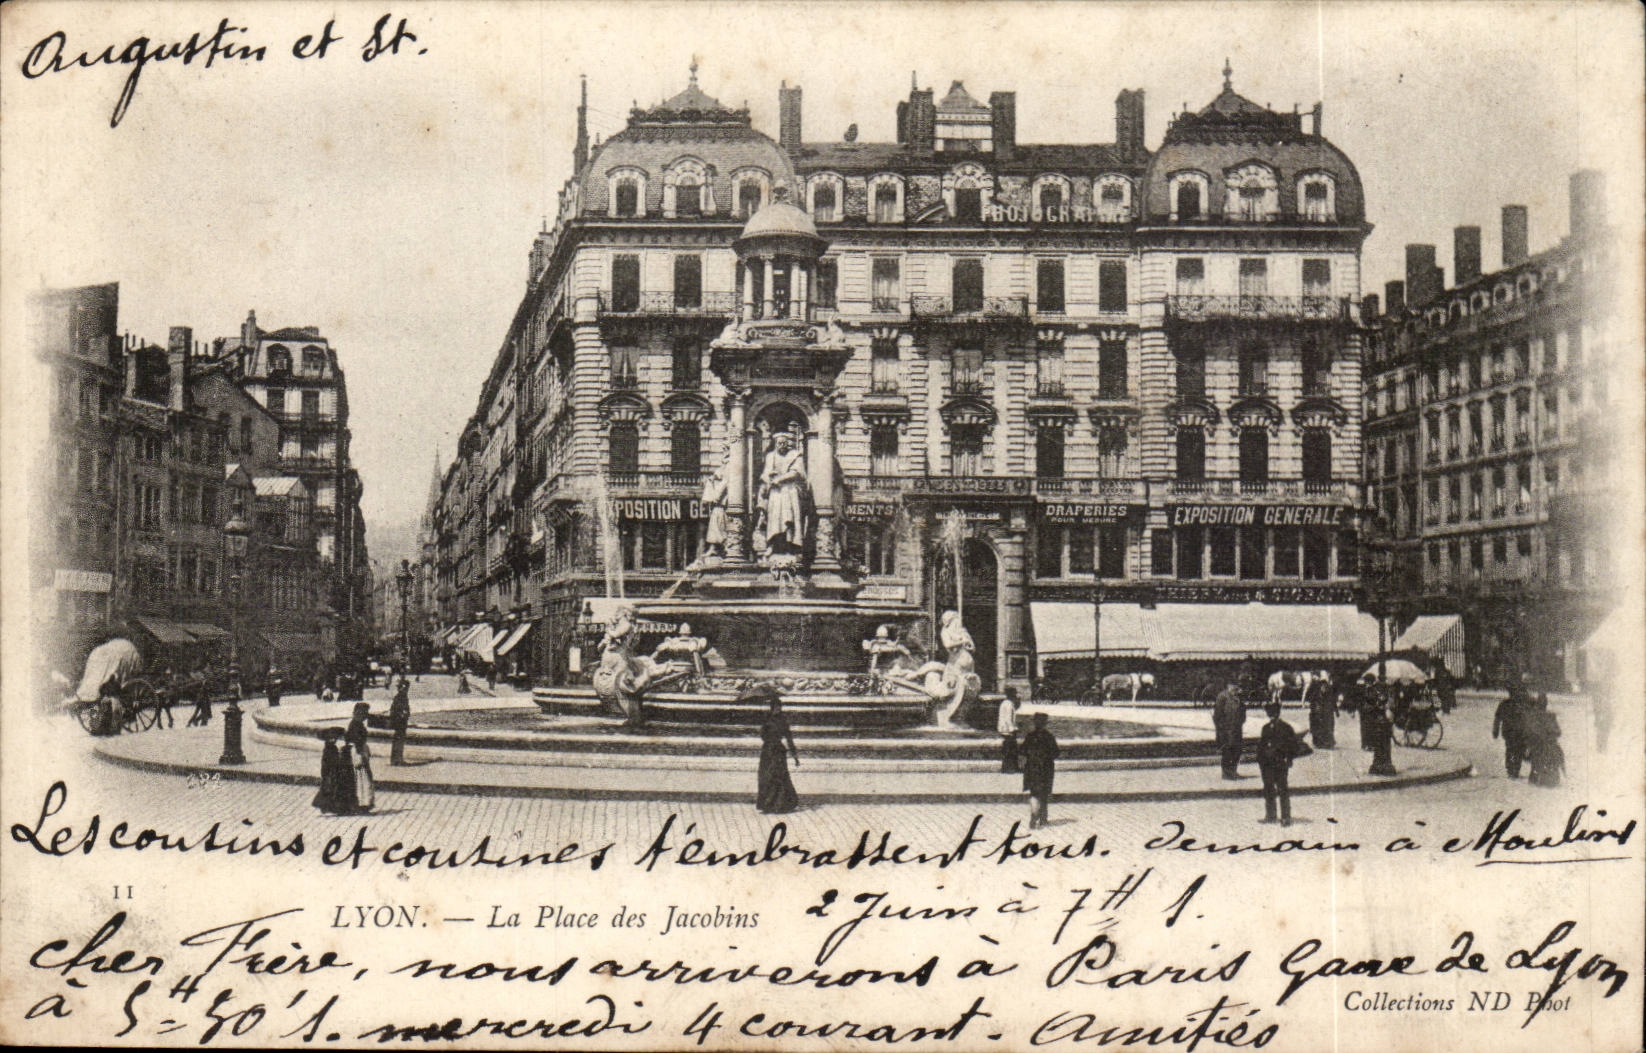 Augustin et St.
PHOTOGRAPHIE
EXPOSITION GÉ
MENTS
DRAPERIES
POUR MESURE
EXPOSITION GENERALE
Les cousins et cousines t'embrassent tous. demain à Moulins
11
LYON. — La Place des Jacobins
2 Juin à 7H S.
cher Frère, nous arriverons à Paris Gare de Lyon
à 5H 50' S. mercredi 4 courant. Amitiés
Collections ND Phot